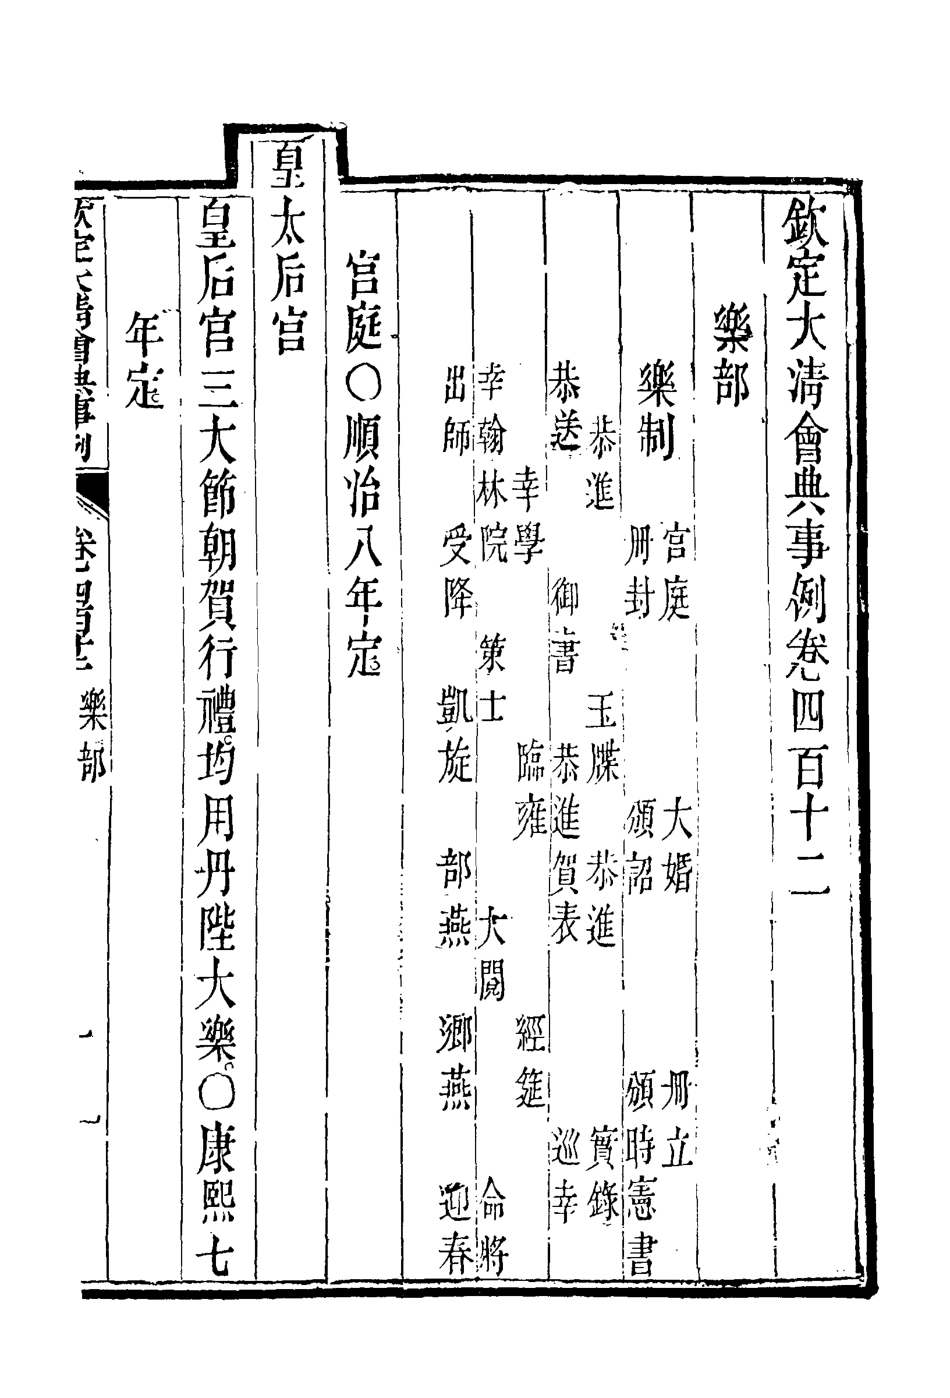 欽定大清會典事例卷四百十二
樂部
樂制
宮庭 大婚 冊立
冊封 頒詔 頒時憲書
恭進 玉牒 恭進 實錄
恭送 御書 恭進賀表 巡幸
幸學 臨雍 經筵
幸翰林院 策士 大閱 命將
出師 受降 凱旋 部燕 鄉燕 迎春
宮庭○順治八年定。
皇太后宮
皇后宮三大節朝賀行禮。均用丹陛大樂。○康熙七
年定。
欽定大清會典事例 卷四百十二 樂部